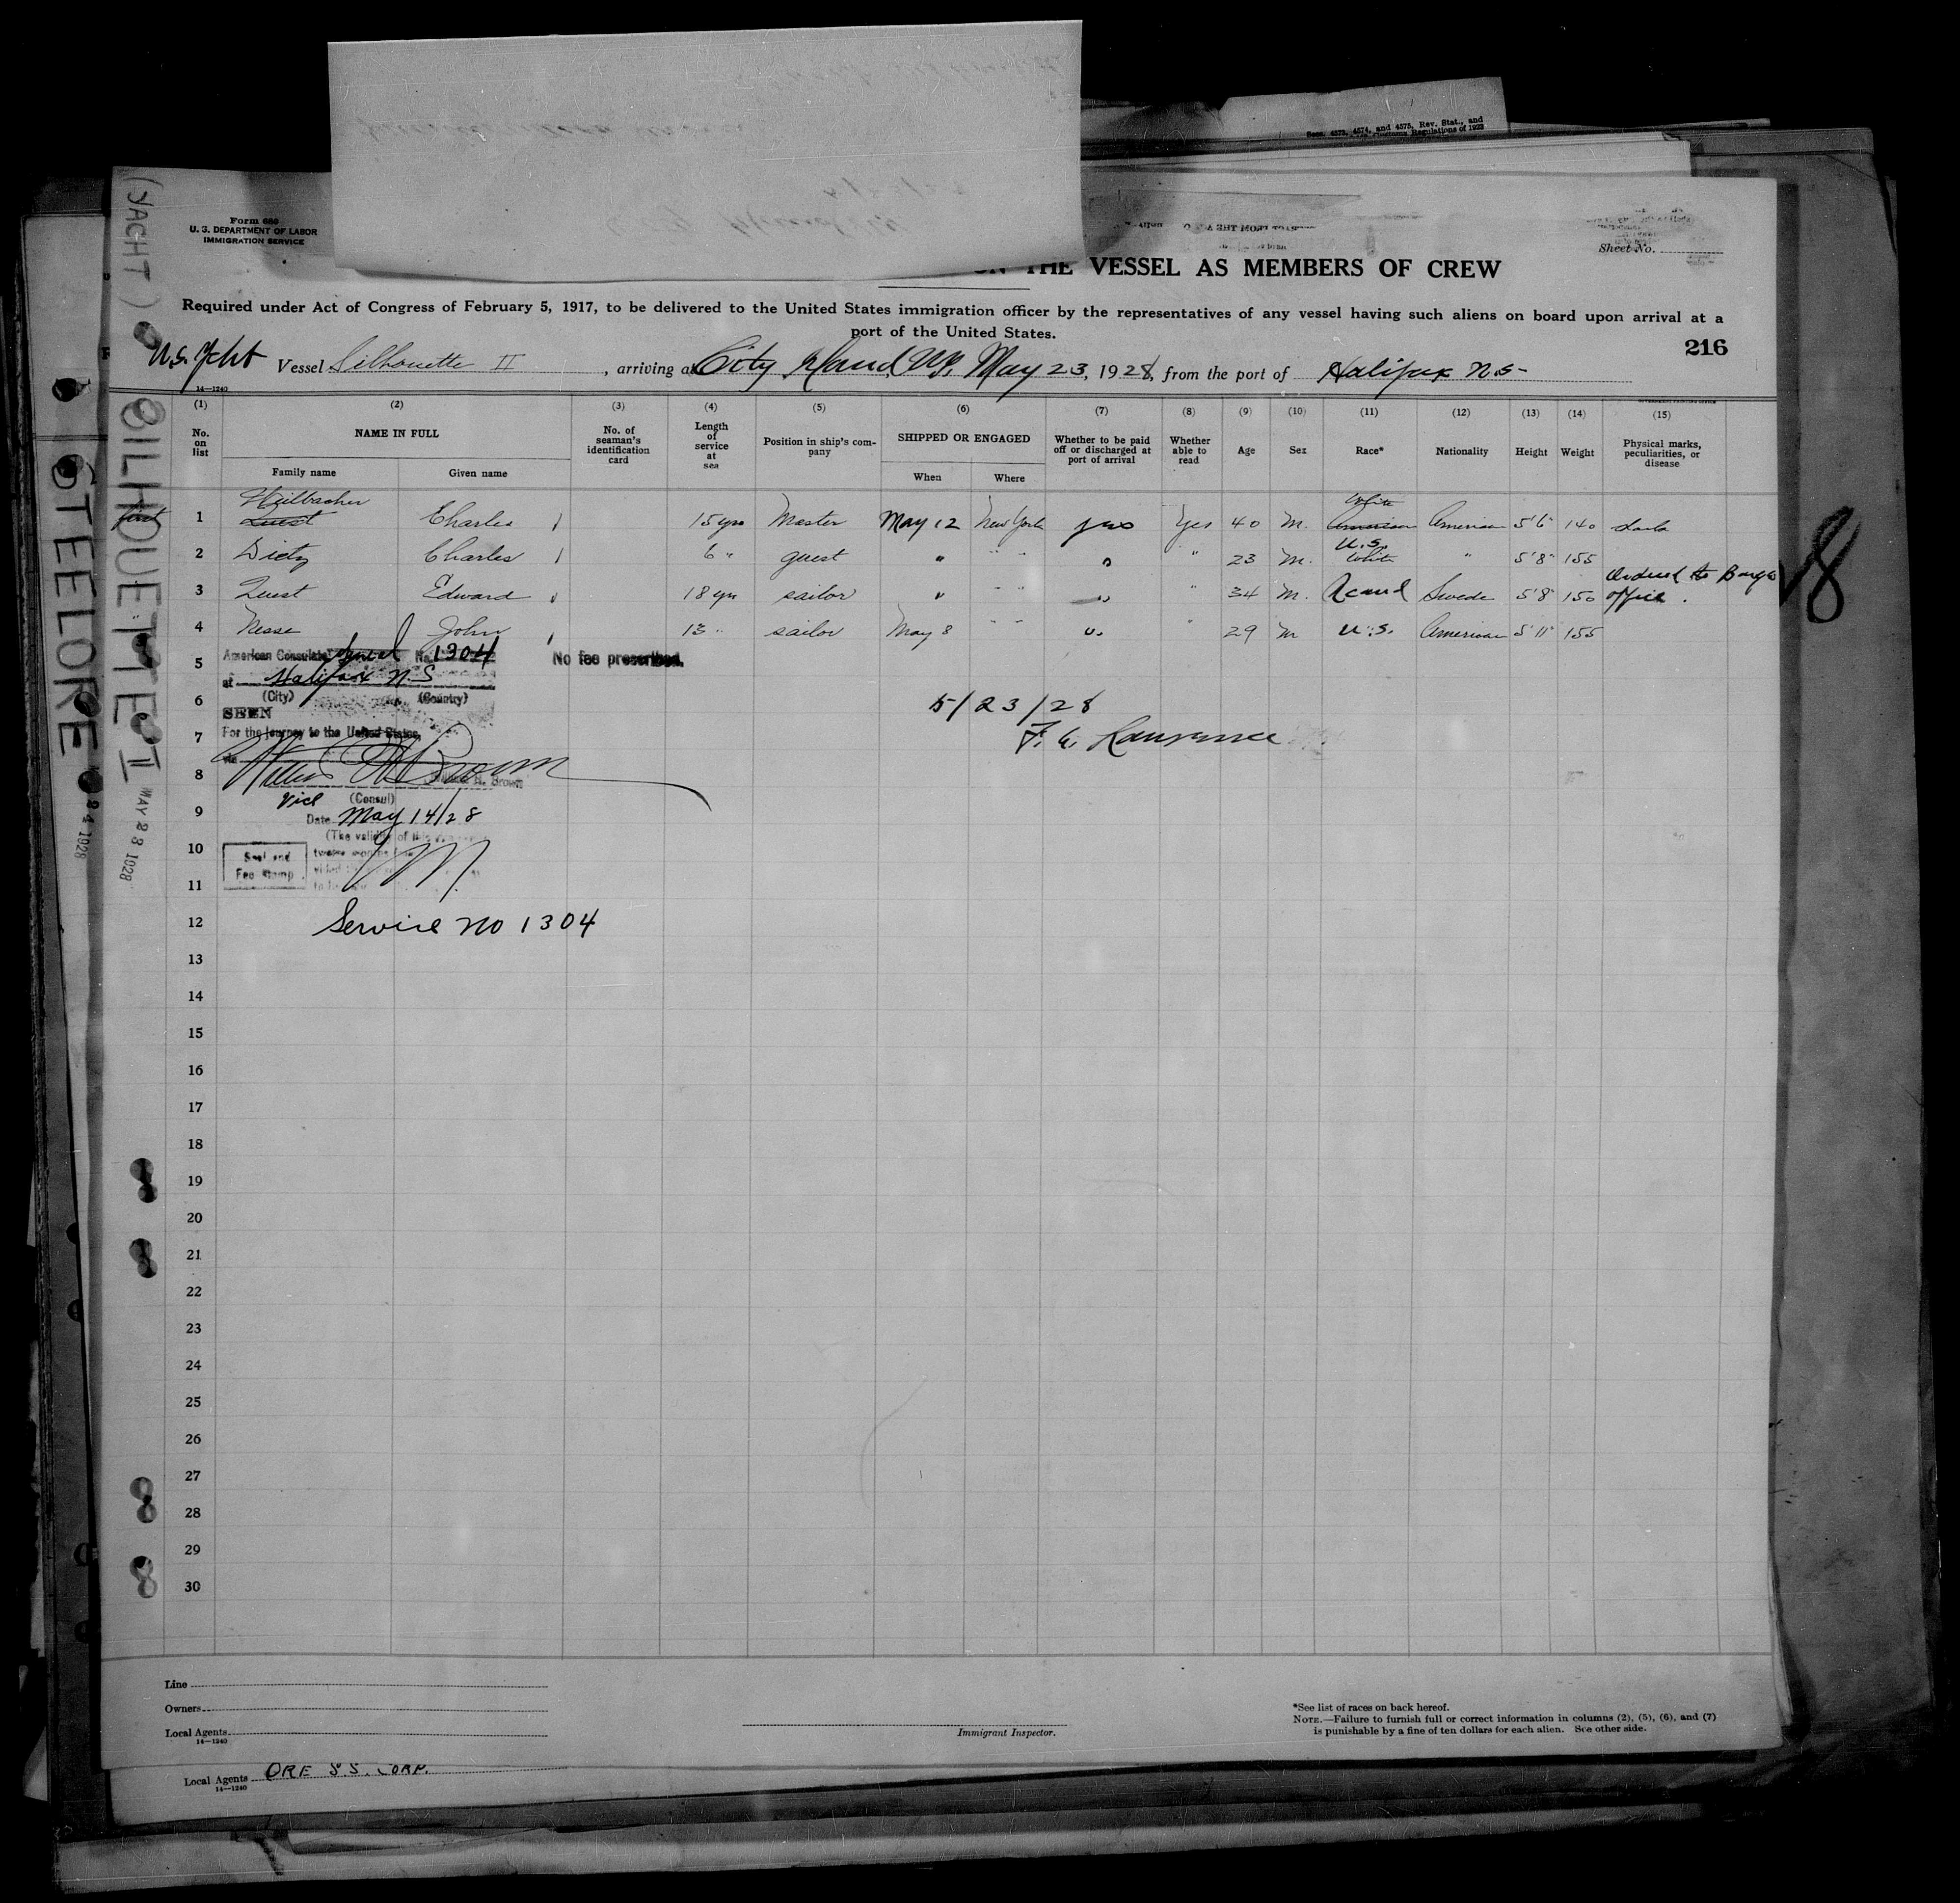 Secs. 4573, 4574, and 4575, Rev. Stat., and
Customs Regulations of 1923
Form 680
U. S. DEPARTMENT OF LABOR
IMMIGRATION SERVICE
Sheet No.
ON THE VESSEL AS MEMBERS OF CREW
Required under Act of Congress of February 5, 1917, to be delivered to the United States immigration officer by the representatives of any vessel having such aliens on board upon arrival at a
port of the United States.
216
U.S. Ycht Vessel Silhouette II, arriving at City Island, N.Y. May 23, 1928, from the port of Halifax N.S-
14—1240
(1) (2) (3) (4) (5) (6) (7) (8) (9) (10) (11) (12) (13) (14) (15)
No. on list NAME IN FULL No. of seaman's identification card Length of service at sea Position in ship's company SHIPPED OR ENGAGED Whether to be paid off or discharged at port of arrival Whether able to read Age Sex Race* Nationality Height Weight Physical marks, peculiarities, or disease
Family name Given name When Where
first 1 Quest Charles 15 yrs Master May 12 New York yes Yes 40 M. White American American 5'6" 140 dark
2 Dietz Charles 6 " guest " " " " " 23 M. U.S. White " 5'8" 155
3 Quest Edward 18 yrs sailor " " " " " 34 M. Scand Swede 5'8" 150 Ordered to Barge office.
4 Nesse John 13 " sailor May 8 " " " " 29 M U.S. American 5'11" 155
5 American Consulate General No. 1304 No fee prescribed.
at Halifax N.S
6 (City) (Country)
SEEN
5/23/28
7 For the journey to the United States,
8 H. Brown
Vice (Consul)
9 Date May 14/28
(The validity of this
10 Seal and
Fee Stamp
twelve months
11
12 Service No 1304
13
14
15
16
17
18
19
20
21
22
23
24
25
26
27
28
29
30
Line
Owners
Local Agents
14—1240
Immigrant Inspector.
*See list of races on back hereof.
NOTE.—Failure to furnish full or correct information in columns (2), (5), (6), and (7)
is punishable by a fine of ten dollars for each alien. See other side.
Local Agents ORE S.S. CORP.
14—1240
(YACHT) SILHOUETTE II MAY 23 1928
STEELORE 24 1928
18